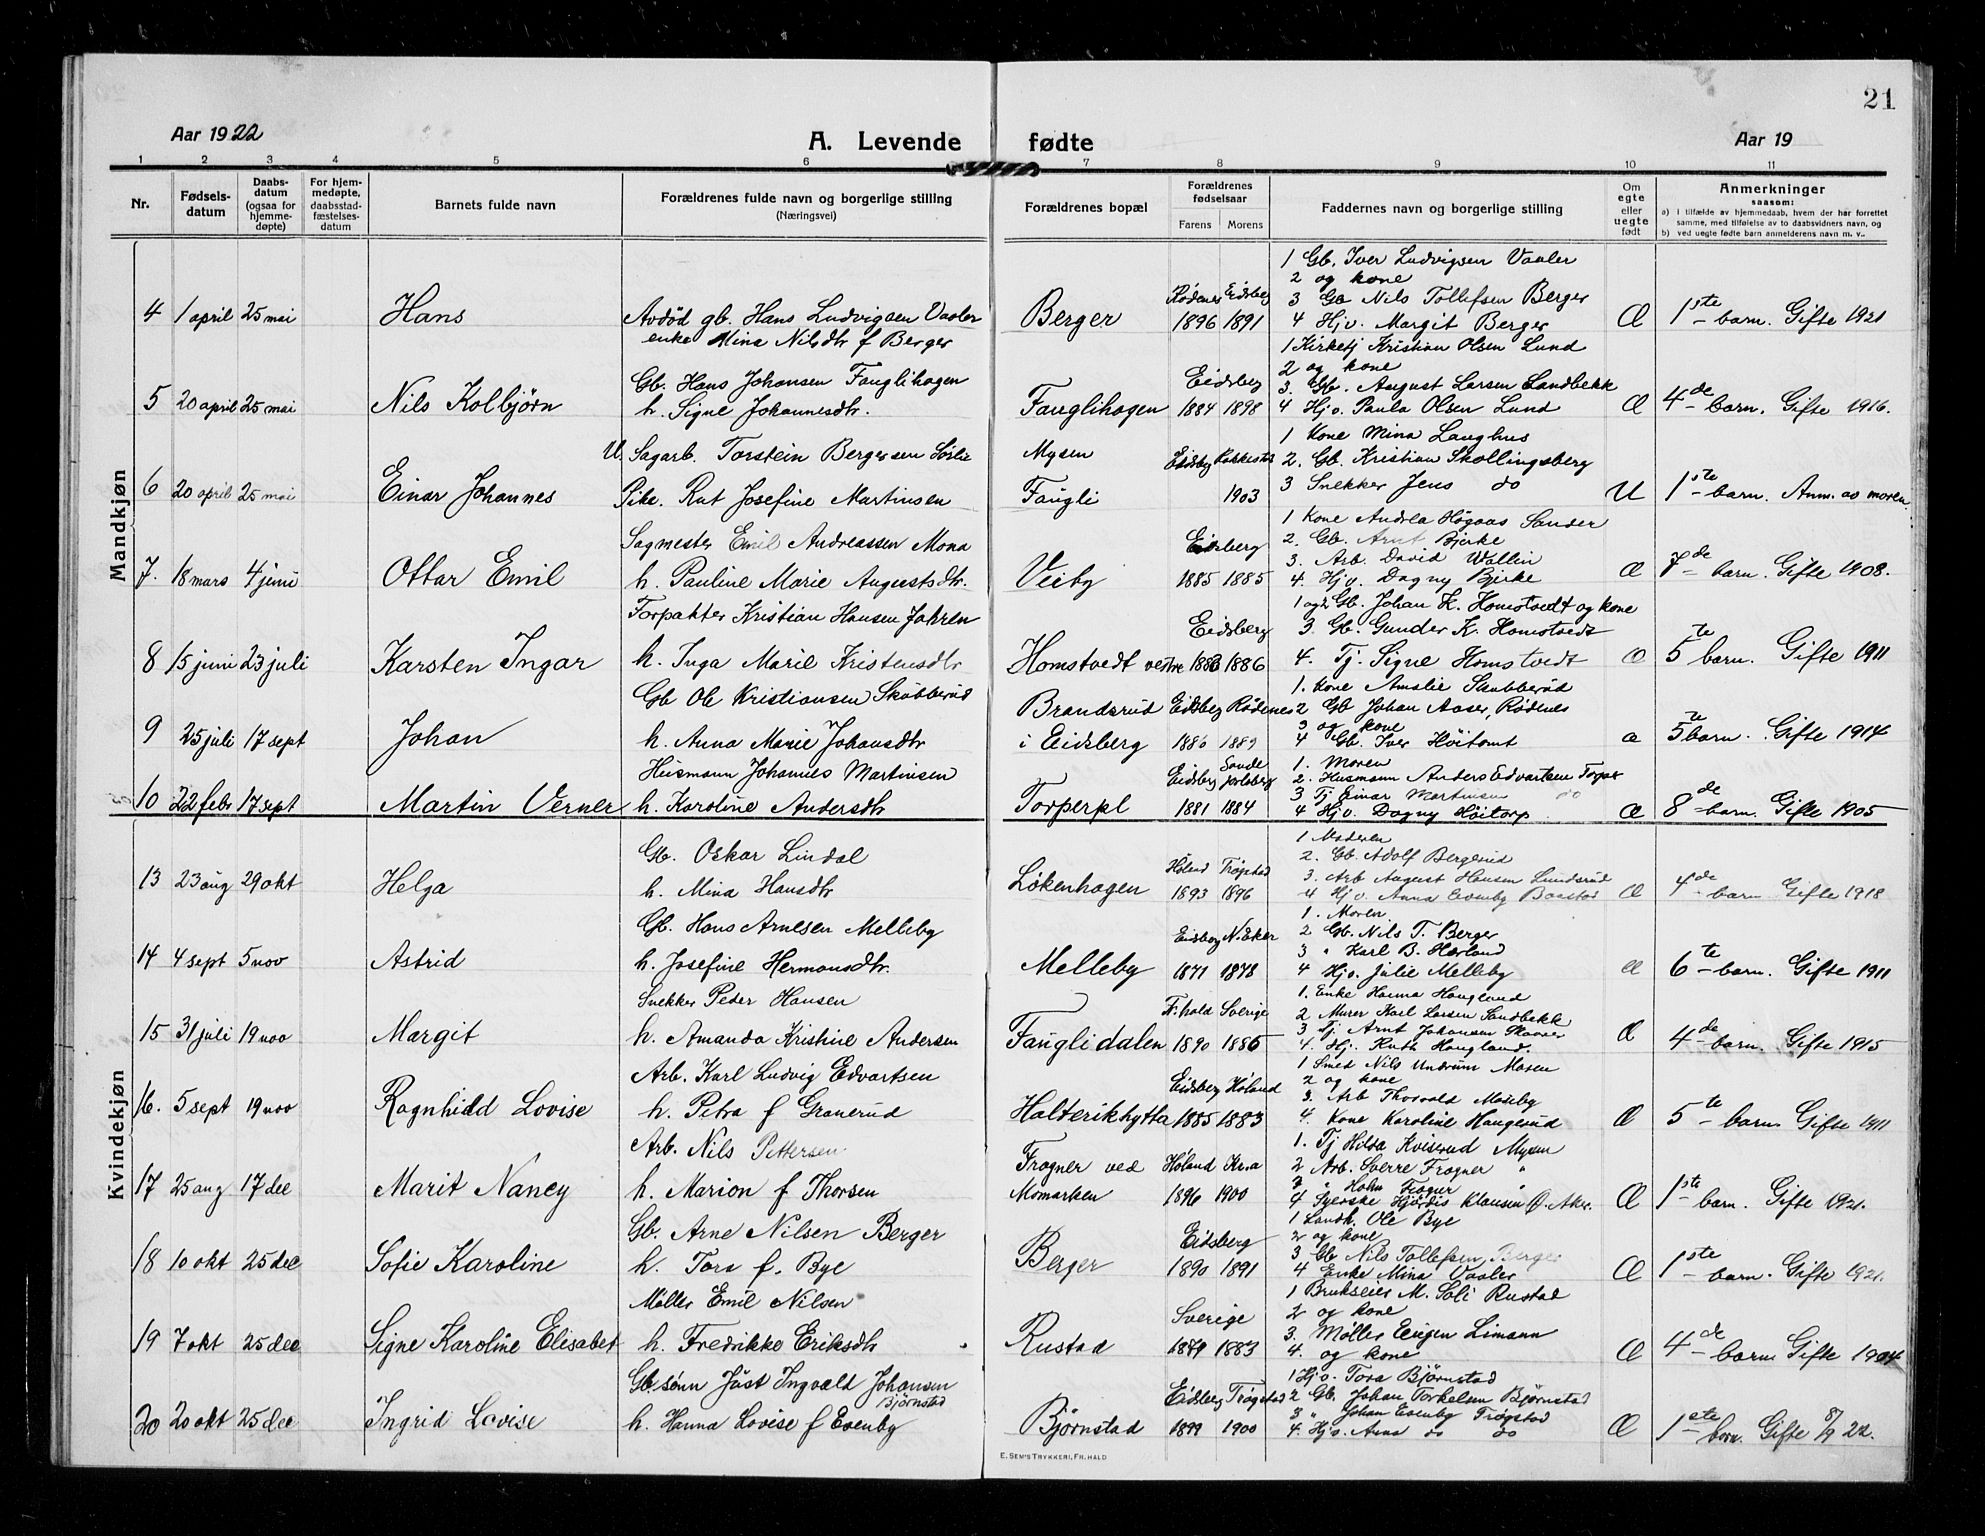 21
Aar 1922 A. Levende fødte Aar 19
1 2 3 4 5 6 7 8 9 10 11
Nr. Fødsels-datum Daabs-datum (ogsaa for hjemme-døpte) For hjem-medøpte, daabsstad-fæstelses-datum Barnets fulde navn Forældrenes fulde navn og borgerlige stilling (Næringsvei) Forældrenes bopæl Forældrenes fødselsaar Farens Morens Faddernes navn og borgerlige stilling Om egte eller uegte født Anmerkninger saasom:
a) i tilfælde av hjemmedaab, hvem der har forrettet samme, med tilføielse av to daabsvidners navn, og
b) ved uegte fødte barn anmelderens navn m. v.
Mandkjøn
1 Gb. Iver Ludvigsen Vaaler
2 og kone
Rødenes Eidsberg 3 Gb Nils Tollefsen Berger
4 1 april 25 mai Hans Avdød gb. Hans Ludvigsen Vaaler Berger 1896 1891 4 Hjv. Margit Berger Æ 1ste barn. Gifte 1921
enke Mina Nilsdtr f Berger
1 Kirketj Kristian Olsen Lund
2 og kone
Gb. Hans Johansen Fauglihagen Eidsberg 3. Gb. August Larsen Sandbekk
5 20 april 25 mai Nils Kolbjørn h. Signe Johannesdtr. Fauglihagen 1884 1898 4 Hjv. Paula Olsen Lund Æ 4de barn. Gifte 1916.
1 Kone Mina Langhus
U. Sagarb. Torstein Bergersen Sørlie Mysen Eidsberg Rakkestad 2. Gb. Kristian Skollingsberg
6 20 april 25 mai Einar Johannes Pike. Rut Josefine Martinsen Faugli 1903 3 Snekker Jens do U 1ste barn. Anm. av moren
1 Kone Andrea Høgaas Sander
Sagmester Emil Andreassen Mona Eidsberg 2. Gb. Arnt Bjerke
3. Arb. David Wallin
7. 18 mars 4 juni Ottar Emil h. Pauline Marie Augustsdtr. Veiby 1885 1885 4. Hjv. Dagny Bjerke Æ 7de barn. Gifte 1908.
1 og 2 Gb. Johan K. Homstvedt og kone
Forpakter Kristian Hansen Jahren Eidsberg 3. Gb. Gunder K. Homstvedt
8 15 juni 23 juli Karsten Ingar h. Inga Marie Kristensdtr Homstvedt vestre 1886 4. Tj. Signe Homstvedt Æ 5te barn. Gifte 1911
1. Kone Amalie Skubberud
Gb Ole Kristiansen Skubberud Brandsrud Eidsberg Rødenes 2 Gb Johan Aaser, Rødenes
3 og kone
9 25 juli 17 sept Johan h. Anna Marie Johansdtr i Eidsberg 1886 1889 4 Gb. Iver Høitomt Æ 5te barn. Gifte 1914
Husmann Johannes Martinsen Eidsberg Sande Jarlsberg 1. Moren
2. Husmann Anders Edvartsen Torper
3 Tj Einar Martinsen do
10 22 febr 17 sept Martin Verner h. Karoline Andersdtr Torperpl 1881 1884 4 Hjv. Dagny Høitorp Æ 8de barn. Gifte 1905
Kvindekjøn
1 Moderen
Gb. Oskar Lindal Høland Trøgstad 2. Gb. Adolf Bergerud
3. Arb August Hansen Lundsrud
13 23 aug 29 okt Helga h. Mina Hansdtr Løkenhagen 1893 1896 4 Hjv. Anna Evenby Baastad Æ 4de barn Gifte 1918
1. Moren
Gb. Hans Arnesen Melleby Eidsberg N. Eker 2 Gb. Nils T. Berger
3 " Karl B. Hærland
14 4 sept 5 nov Astrid h. Josefine Hermansdtr. Melleby 1871 1878 4 Hjv. Julie Melleby Æ 6te barn. Gifte 1911
1. Enke Hanna Haugland
Snekker Peder Hansen F.hald Sverige 2 Murer Karl Larsen Sandbekk
3 Tj Arnt Johansen Skaarer
15 31 juli 19 nov Margit h. Amanda Kristine Andersen Fauglidalen 1890 1886 4. Hj. Ruth Haugland. Æ 4de barn. Gifte 1915
1 Smed Nils Undrum Mosen
Arb. Karl Ludvig Edvartsen Eidsberg Høland 2 og kone
3. Arb Thorvald Moseby
16. 5 sept 19 nov Ragnhild Lovise h. Petra f Granerud Halterikhytta 1885 1883 4. Kone Karoline Haugerud Æ 5te barn Gifte 1911
1. Tj Hilda Kviserud Mysen
Arb. Nils Pettersen Frogner ved Høland Kr.a 2 Arb. Sverre Frogner "
3 " Hakn Frogner "
17 25 aug 17 dec Marit Nancy h. Marion f Thorsen Momarken 1896 1900 4 Syerske Hjørdis Klausen Ø. Aker. Æ 1ste barn. Gifte 1921.
1 Landh. Ole Bye
Gb. Arne Nilsen Berger Eidsberg 2 og kone
3 Gb Nils Tollefsen Berger
18 10 okt 25 dec Sofie Karoline h. Tora f. Bye Berger 1890 1891 4 Enke Mina Vaaler Æ 1ste barn. Gifte 1921.
1 Brukseier M. Soli Rustad
Møller Emil Nilsen Sverige 2 og kone
3. Møller Eugen Limann
19 7 okt 25 dec Signe Karoline Elisabet h. Fredrikke Eriksdtr Rustad 1879 1883 4. og kone Æ 4de barn Gifte 1904
1 Hjv. Tora Bjørnstad
Gb sønn Just Ingvald Johansen Bjørnstad Eidsberg Trøgstad 2 Gb. Johan Torkelsen Bjørnstad
3 " Johan Evenby Trøgstad
20 20 okt 25 dec Ingrid Lovise h. Hanna Lovise f Evenby Bjørnstad 1899 1900 4. Hjv. Anna do do Æ 1ste barn. Gifte 8/9 22.
E. SEM'S TRYKKERI, FR.HALD